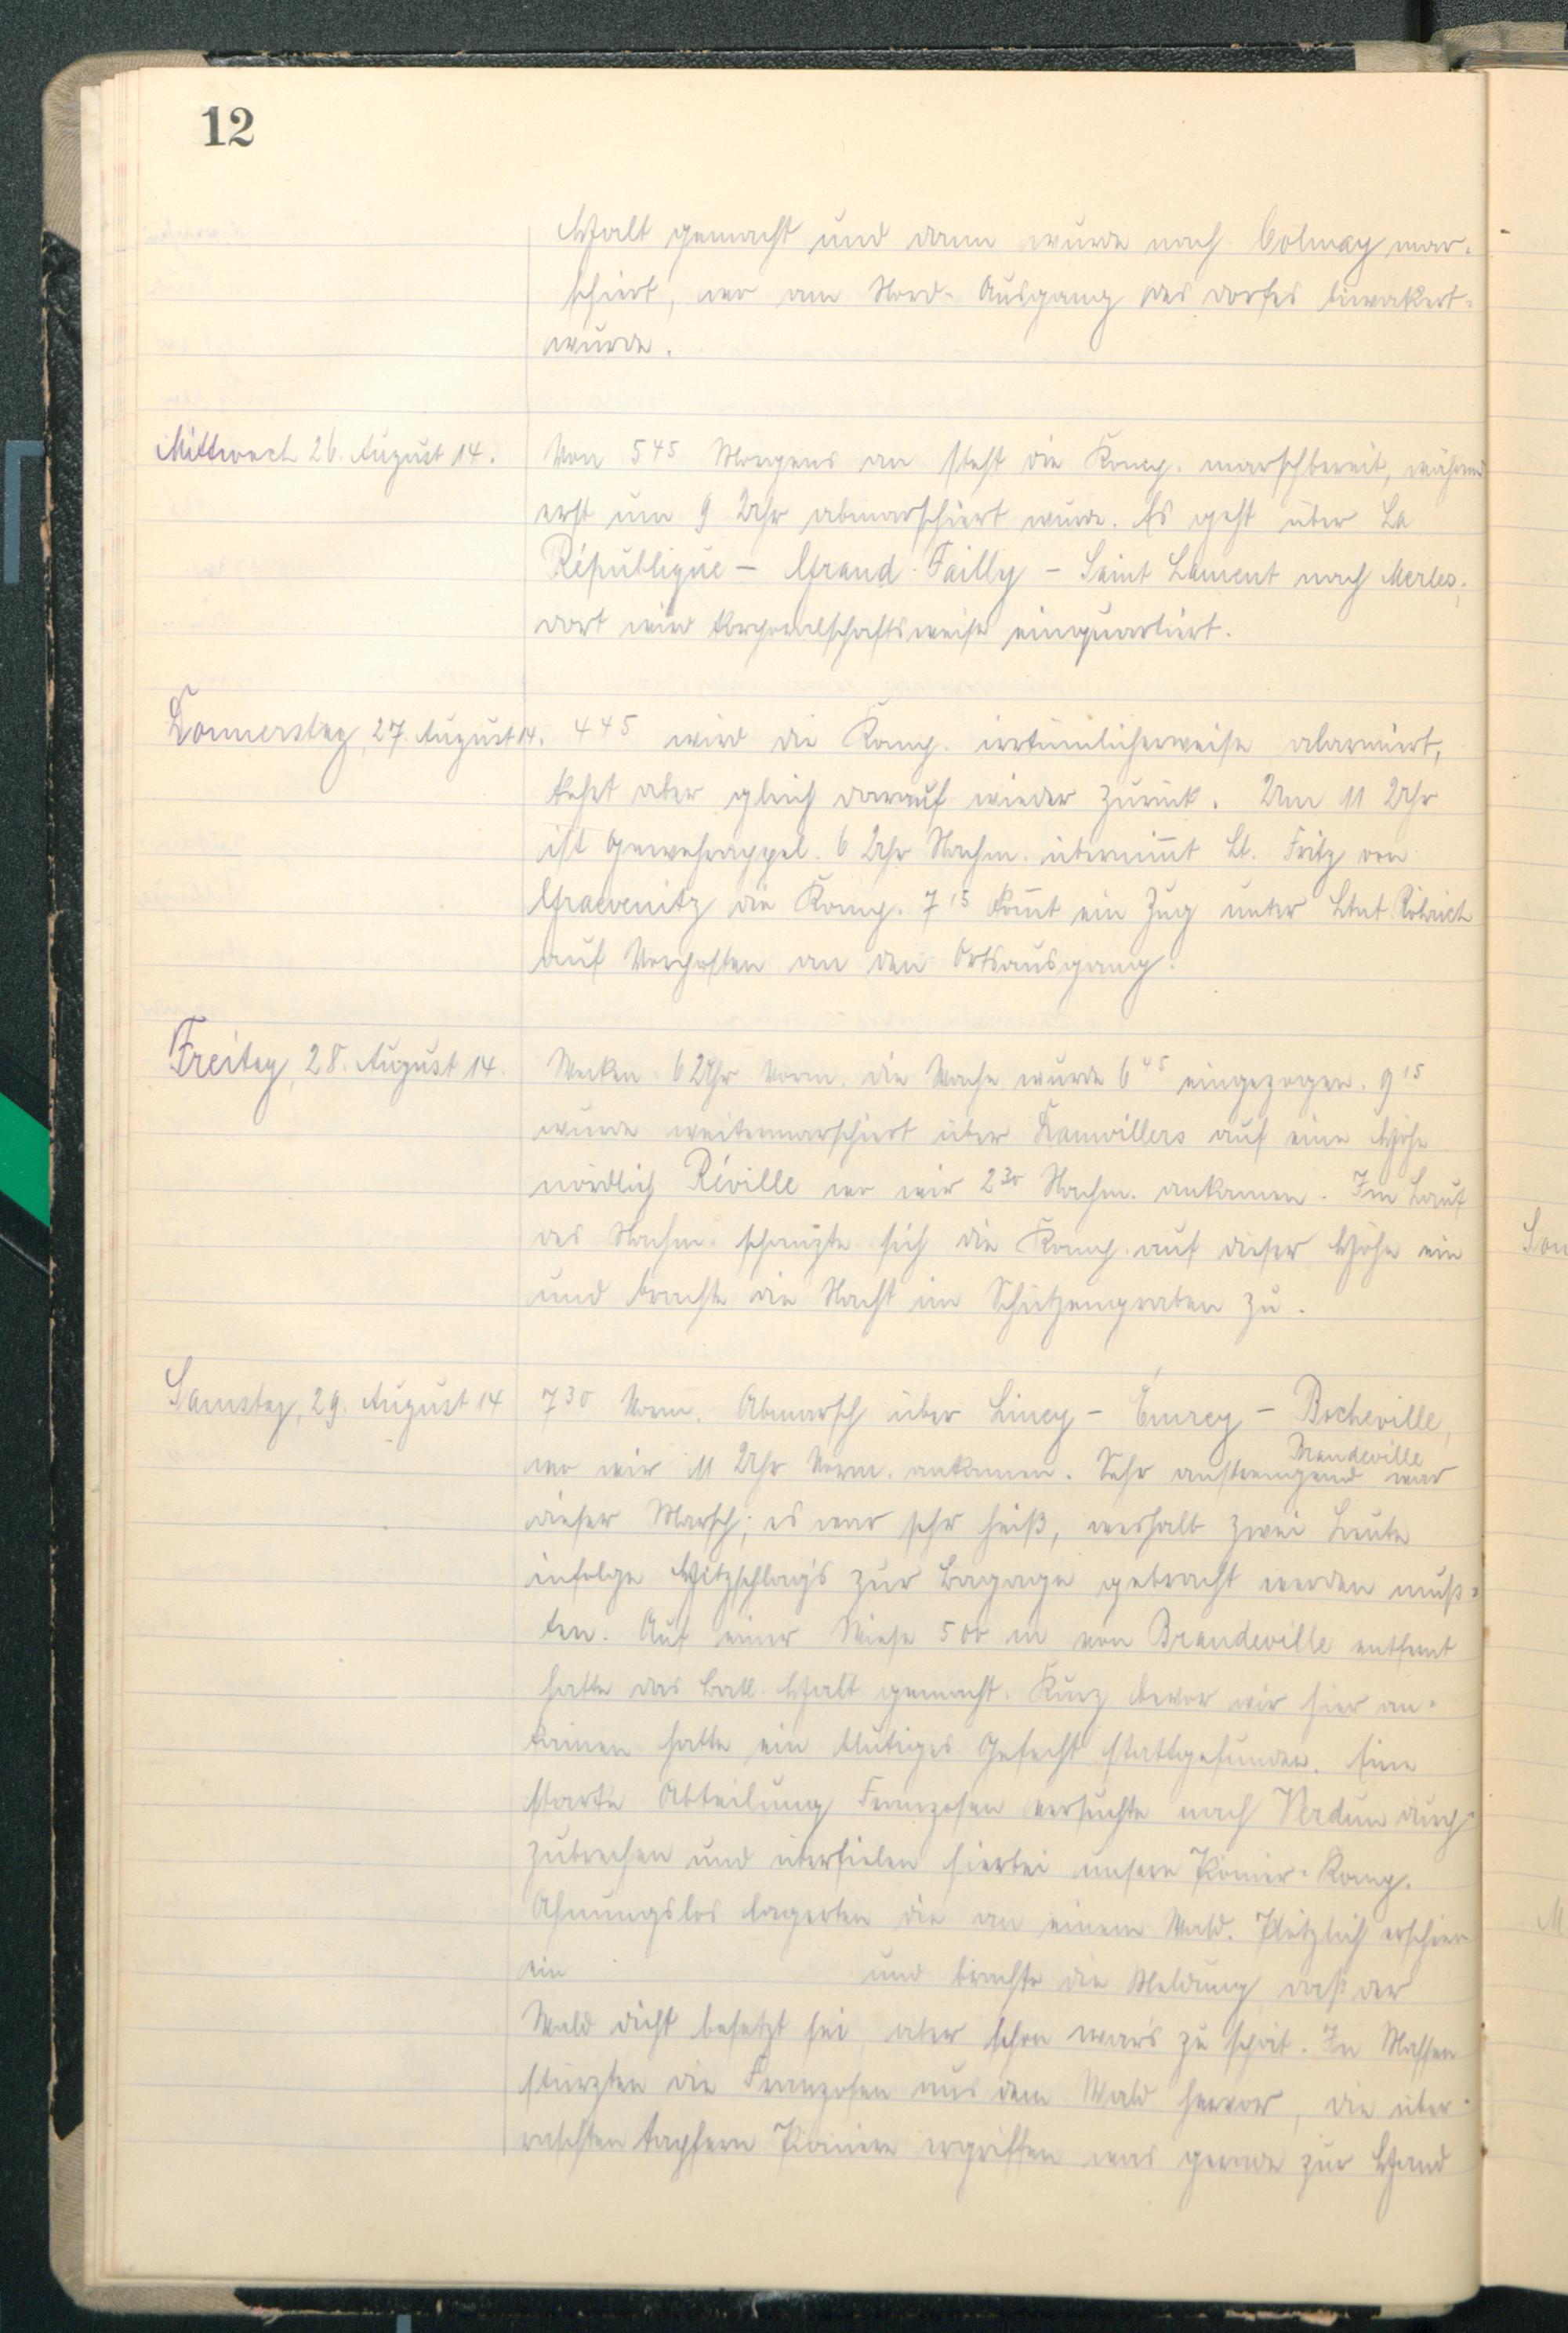 12
Halt gemacht und dann wurde nach Colmay mar-
schiert, wo am Nord-Ausgang des Dorfes biwakiert
wurde.
Mittwoch 26. August 14.
Von 5 45 Morgens an steht die Komp. marschbereit, während
erst um 9 Uhr abmarschiert wurde. Es geht über La
République - Grand-Failly - Saint Laurent nach Merles,
dort wird korporalschaftsweise einquartiert.
Donnerstag, 27. August 14.
4 45 wird die Komp. irrtümlicherweise alarmiert,
kehrt aber gleich darauf wieder zurück. Um 11 Uhr
ist Gewehrappel. 6 Uhr Nachm. übernim̅t Lt. Fritz von
Graevenitz die Komp. 7 15 kom̅t ein Zug unter Ltnt
auf Vorposten an den Ortsausgang.
Freitag, 28. August 14.
Wecken 6 Uhr Vorm. die Wache wurde 6 45 eingezogen. 9 15
wurde weitermarschiert über Damvillers auf eine Höhe
nördlich Réville wo wir 2 30 Nachm. ankamen. Im Lauf
des Nachm. schanzte sich die Komp. auf dieser Höhe ein
und brachte die Nacht im Schützengraben zu.
Samstag, 29. August 14
7 30 Vorm. Abmarsch über Liney - Émrey - Bocheville,
Brandeville
wo wir 11 Uhr Vorm. ankamen. Sehr anstrengend war
dieser Marsch; es war sehr heiß, weshalb zwei Leute
infolge Hitzschlag's zur Bagage gebracht werden muß-
ten. Auf einer Wiese 500 m von Brandeville entfernt
hatte das Batl. Halt gemacht. Kurz bevor wir hier an-
kamen hatte ein blutiges Gefecht stattgefunden. Eine
starke Abteilung Franzosen versuchte nach Verdun durch-
zubrechen und überfielen hierbei unsere Pionier-Komp.
Ahnungslos lagerten die an einem Wald. Plötzlich erschien
ein und brachte die Meldung daß der
Wald dicht besetzt sei, aber schon war's zu spät. In Massen
stürzten die Franzosen aus dem Wald hervor, die über-
raschten tapfern Pioniere ergriffen was gerade zur Hand